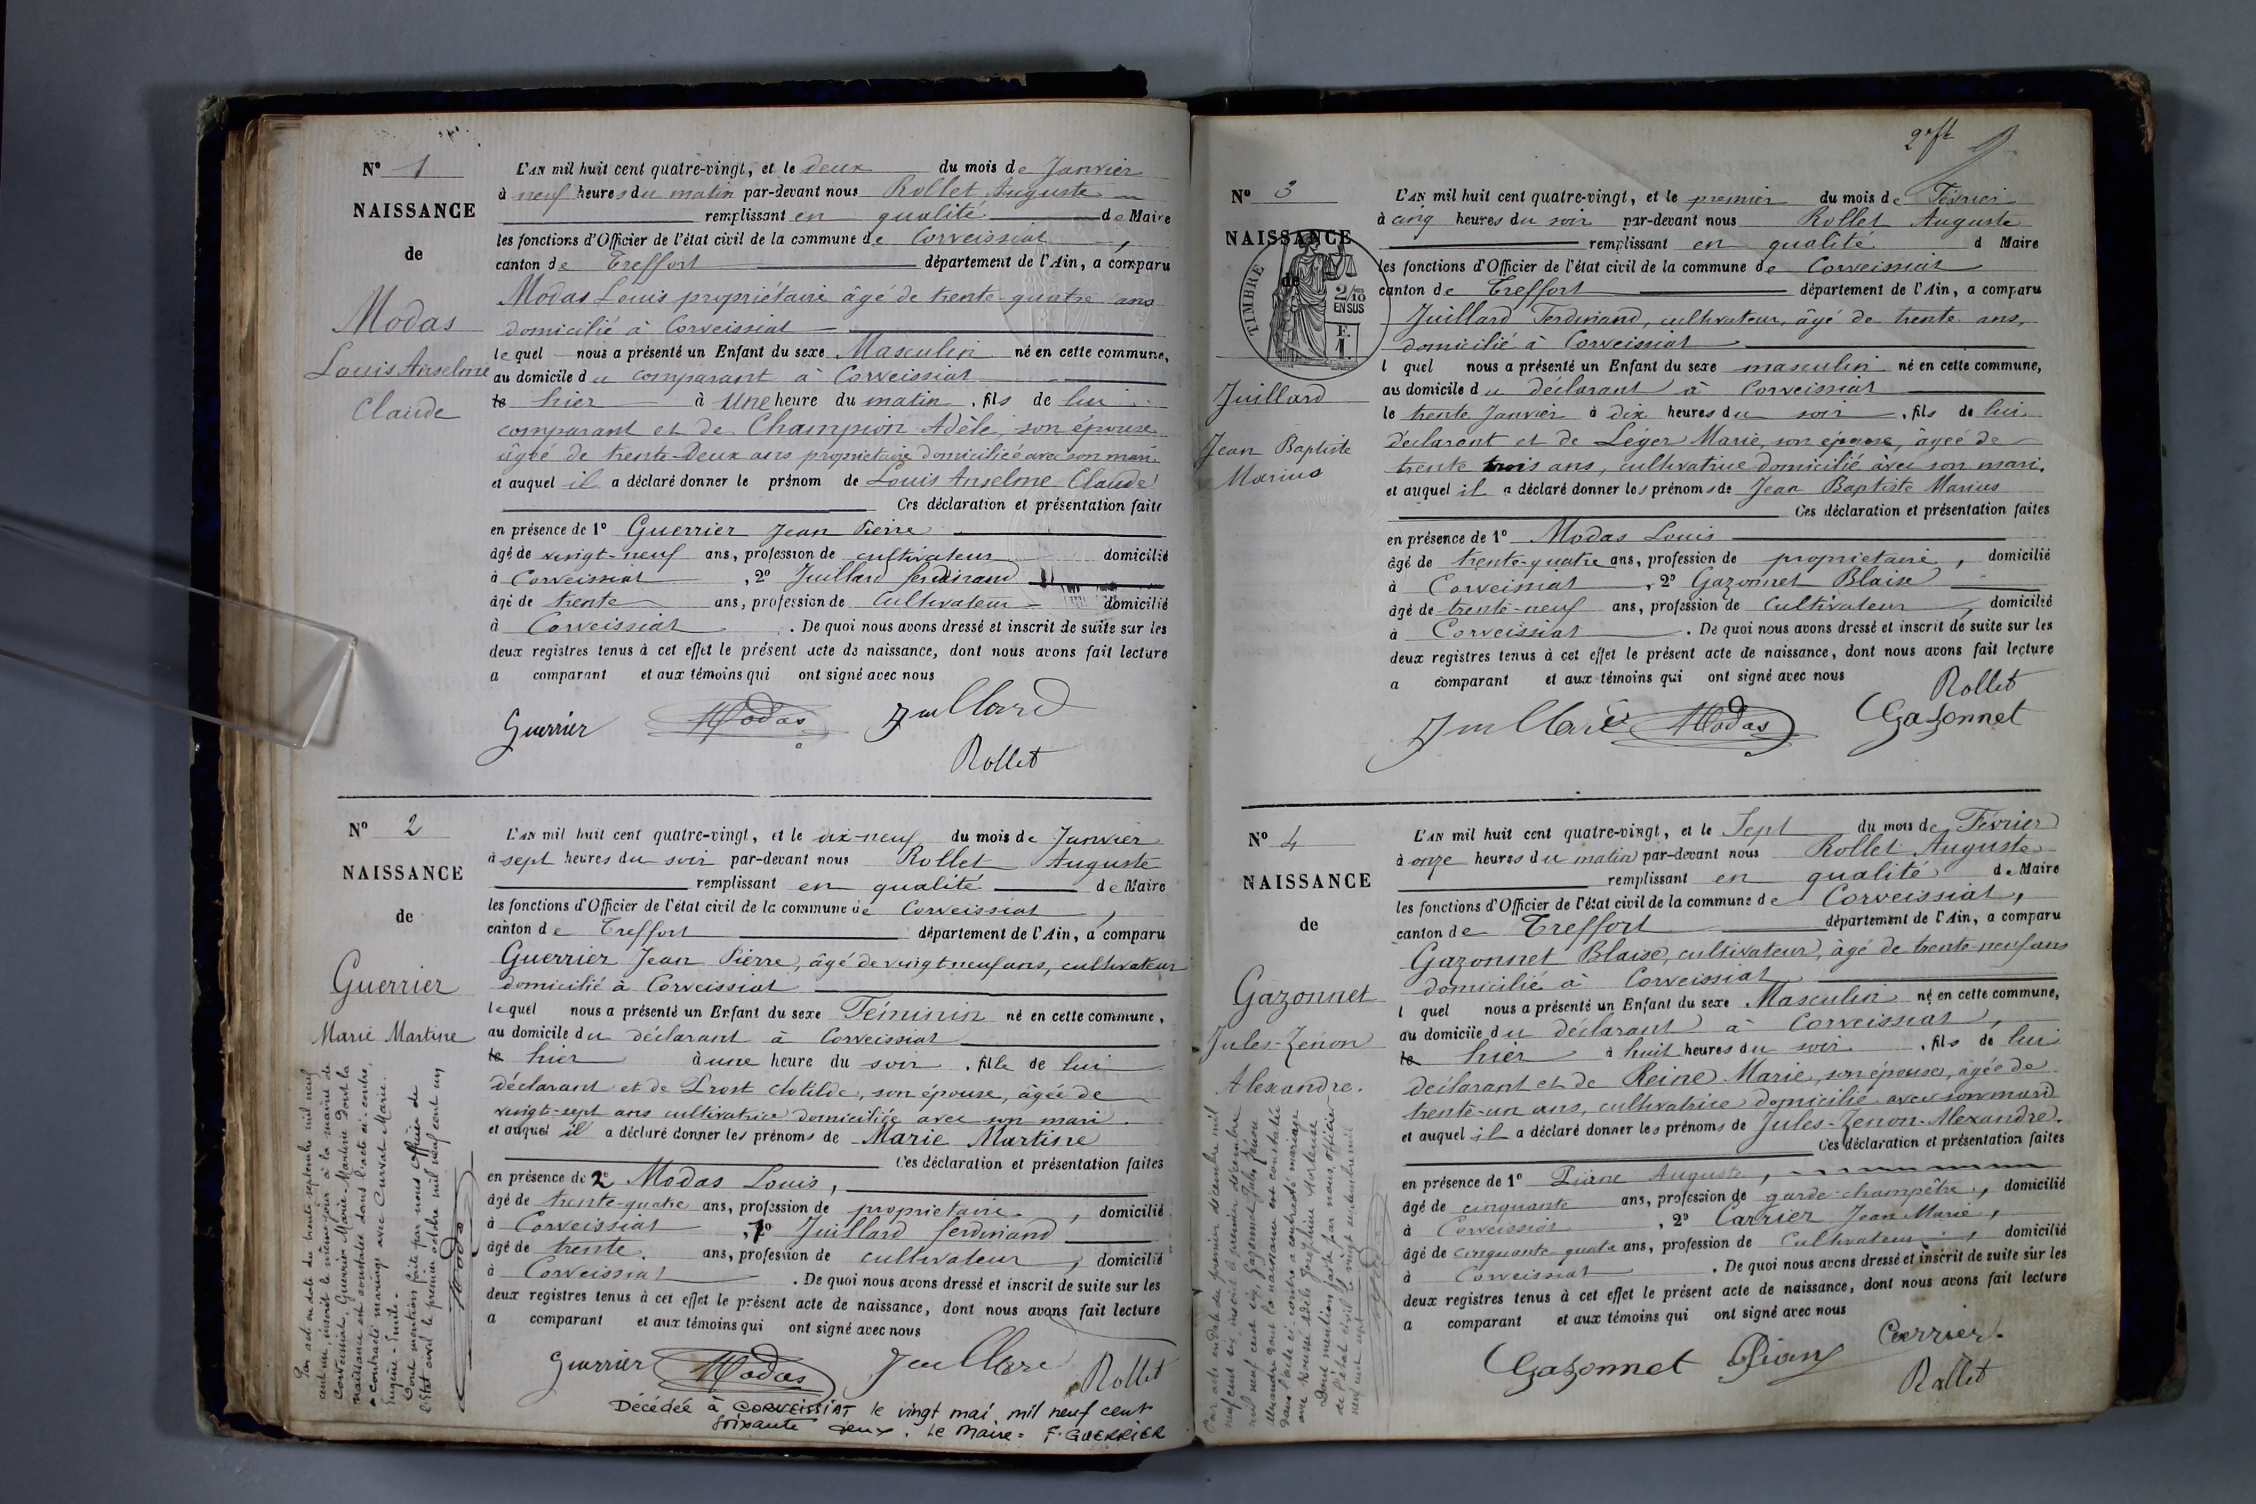 Nº 1
NAISSANCE
de
Modas
Louis Anselme
Claude
L'AN mil huit cent quatre-vingt, et le deux du mois de Janvier
à neuf heures du matin par-devant nous Rollet Auguste
remplissant en qualité de Maire
les fonctions d'Officier de l'état civil de la commune de Corveissiat,
canton de Treffort département de l'Ain, a comparu
Modas Louis propriétaire âgé de trente-quatre ans
domicilié à Corveissiat
lequel nous a présenté un Enfant du sexe Masculin né en cette commune,
au domicile du comparant à Corveissiat
le hier à Une heure du matin, fils de lui
comparant et de Champion Adèle, son épouse
âgée de trente-Deux ans propriétaire domiciliée avec son mari
et auquel il a déclaré donner le prénom de Louis Anselme Claude
Ces déclaration et présentation faites
en présence de 1º Guerrier Jean Pierre
âgé de vingt-neuf ans, profession de cultivateur domicilié
à Corveissiat, 2º Juillard ferdinand
âgé de trente ans, profession de Cultivateur domicilié
à Corveissiat. De quoi nous avons dressé et inscrit de suite sur les
deux registres tenus à cet effet le présent acte de naissance, dont nous avons fait lecture
a comparant et aux témoins qui ont signé avec nous
Guerrier Modas Juillard
Rollet
Nº 2
NAISSANCE
de
Guerrier
Marie Martine
L'AN mil huit cent quatre-vingt, et le dix-neuf du mois de Janvier
à sept heures du soir par-devant nous Rollet Auguste
remplissant en qualité de Maire
les fonctions d'Officier de l'état civil de la commune de Corveissiat,
canton de Treffort département de l'Ain, a comparu
Guerrier Jean Pierre, âgé de vingt neuf ans, cultivateur
domicilié à Corveissiat
lequel nous a présenté un Enfant du sexe Féminin né en cette commune,
au domicile du déclarant à Corveissiat
le hier à une heure du soir, fille de lui
déclarant et de Prost Clotilde, son épouse, âgée de
vingt-sept ans cultivatrice domiciliée avec son mari
et auquel il a déclaré donner les prénoms de Marie Martine
Ces déclaration et présentation faites
en présence de 2º Modas Louis,
âgé de trente-quatre ans, profession de propriétaire, domicilié
à Corveissiat, 1º Juillard ferdinand
âgé de trente ans, profession de cultivateur, domicilié
à Corveissiat. De quoi nous avons dressé et inscrit de suite sur les
deux registres tenus à cet effet le présent acte de naissance, dont nous avons fait lecture
a comparant et aux témoins qui ont signé avec nous
Guerrier Modas Juillard Rollet
Décédée à CORVEISSIAT le vingt mai mil neuf cent
soixante deux. Le Maire = F. GUERRIER
Par acte en date du trente septembre mil neuf
cent un, inscrit le même jour à la mairie de
Corveissiat, Guerrier Marie-Martine dont la
naissance est constatée dans l'acte ci-contre,
a contracté mariage avec Curvat Marie
Eugène-Emile.
Dont mention faite par nous officier de
l'état civil le premier octobre mil neuf cent un
Modas
2 ft
Nº 3
NAISSANCE
de
TIMBRE
2/10
EN SUS
F.
1
Juillard
Jean Baptiste
Marius
L'AN mil huit cent quatre-vingt, et le premier du mois de Février
à cinq heures du soir par-devant nous Rollet Auguste
remplissant en qualité d Maire
les fonctions d'Officier de l'état civil de la commune de Corveissiat
canton de Treffort département de l'Ain, a comparu
Juillard Ferdinand, cultivateur, âgé de trente ans,
domicilié à Corveissiat
l quel nous a présenté un Enfant du sexe masculin né en cette commune,
au domicile du déclarant à Corveissiat
le trente Janvier à dix heures du soir, fils de lui
déclarant et de Léger Marie, son épouse, âgée de
trente trois ans, cultivatrice domicilié avec son mari.
et auquel il a déclaré donner les prénoms de Jean Baptiste Marius
Ces déclaration et présentation faites
en présence de 1º Modas Louis
âgé de trente-quatre ans, profession de propriétaire, domicilié
à Corveissiat, 2º Gazonnet Blaise
âgé de trente-neuf ans, profession de Cultivateur, domicilié
à Corveissiat. De quoi nous avons dressé et inscrit de suite sur les
deux registres tenus à cet effet le présent acte de naissance, dont nous avons fait lecture
a comparant et aux témoins qui ont signé avec nous
Rollet
Juillard Modas Gazonnet
Nº 4
NAISSANCE
de
Gazonnet
Jules-Zénon
Alexandre.
L'AN mil huit cent quatre-vingt, et le Sept du mois de Février
à onze heures du matin par-devant nous Rollet Auguste
remplissant en qualité de Maire
les fonctions d'Officier de l'état civil de la commune de Corveissiat,
canton de Treffort département de l'Ain, a comparu
Gazonnet Blaise, cultivateur, âgé de trente-neuf ans
domicilié à Corveissiat
l quel nous a présenté un Enfant du sexe Masculin né en cette commune,
au domicile du déclarant à Corveissiat,
le hier à huit heures du soir, fils de lui
déclarant et de Reine Marie, son épouse, âgée de
trente-un ans, cultivatrice domicilié avec son mari
et auquel il a déclaré donner les prénoms de Jules-Zenon-Alexandre.
Ces déclaration et présentation faites
en présence de 1º Auguste,
âgé de cinquante ans, profession de garde-champêtre, domicilié
à Corveissiat, 2º Carrier Jean Marie,
âgé de cinquante quatre ans, profession de Cultivateur, domicilié
à Corveissiat. De quoi nous avons dressé et inscrit de suite sur les
deux registres tenus à cet effet le présent acte de naissance, dont nous avons fait lecture
a comparant et aux témoins qui ont signé avec nous
Gazonnet Carrier
Rollet
Par acte en date du premier décembre mil
neuf cent six inscrit le premier décembre
mil neuf cent six, Gazonnet Jules Zénon
Alexandre dont la naissance est constatée
dans l'acte ci-contre a contracté mariage
avec Adèle Joséphine Hortense
Dont mention faite par nous, officier
de l'état civil, le vingt
neuf cent